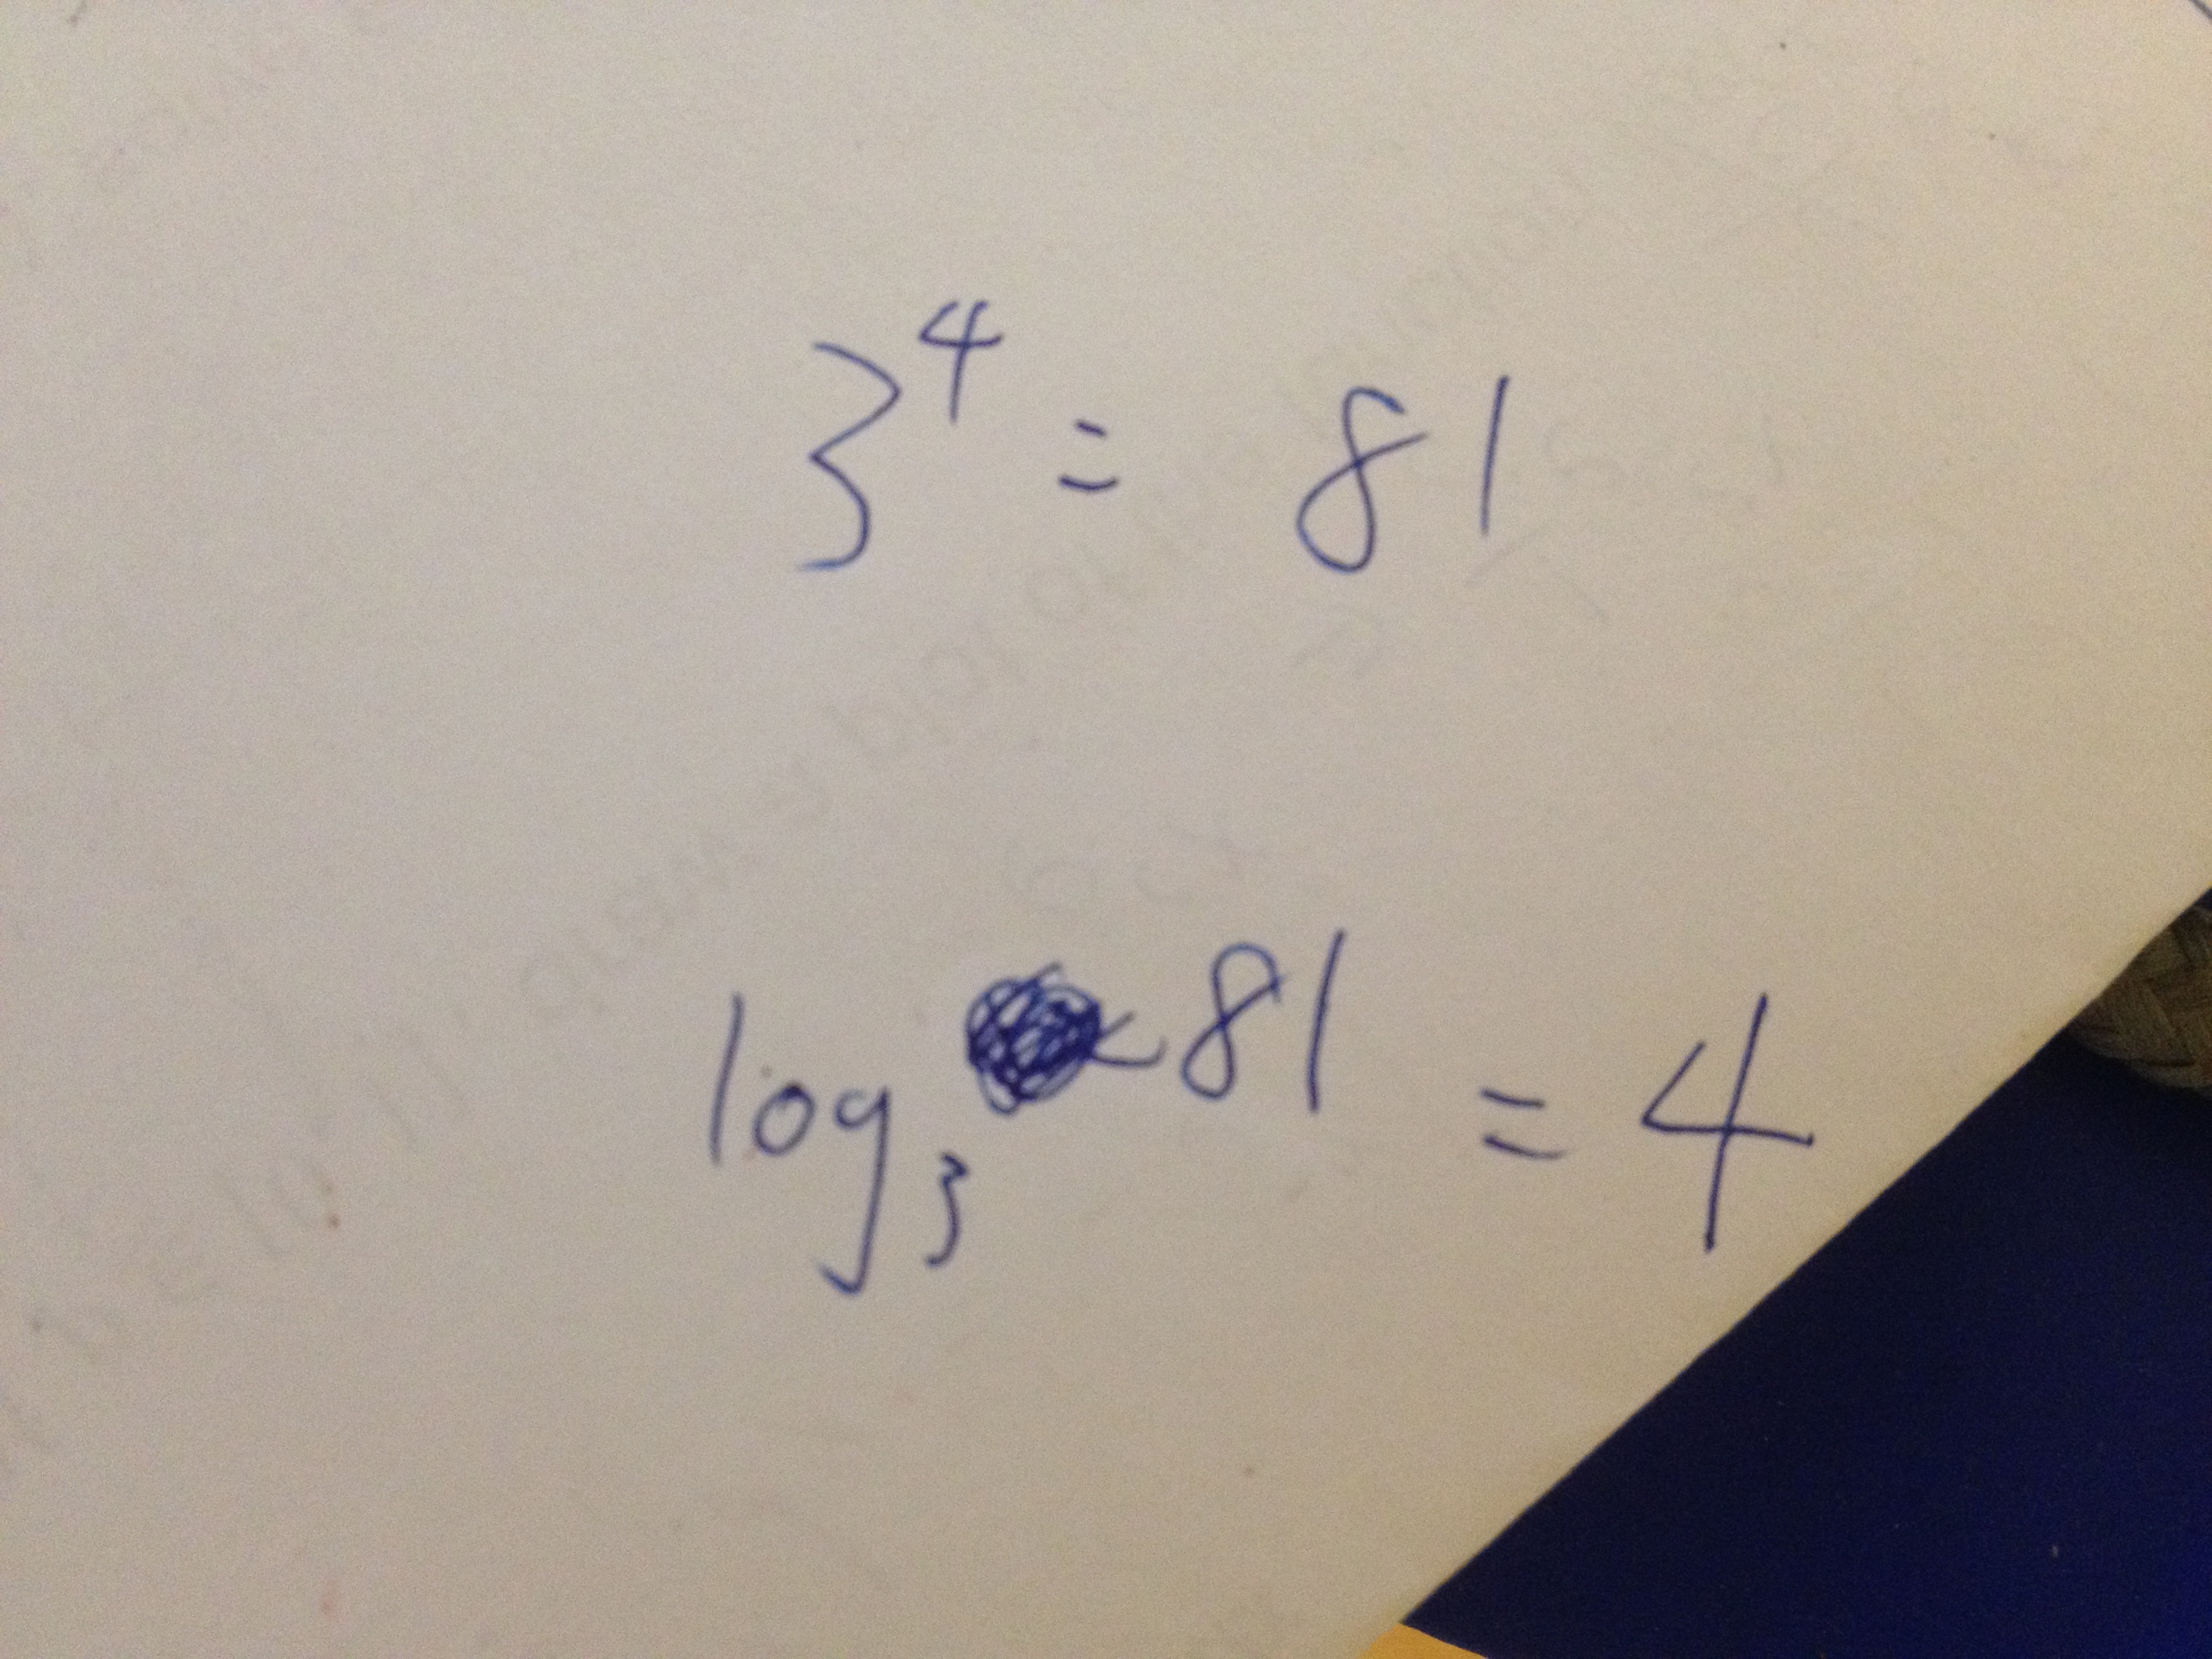 3⁴ = 81
log₃ 81 = 4